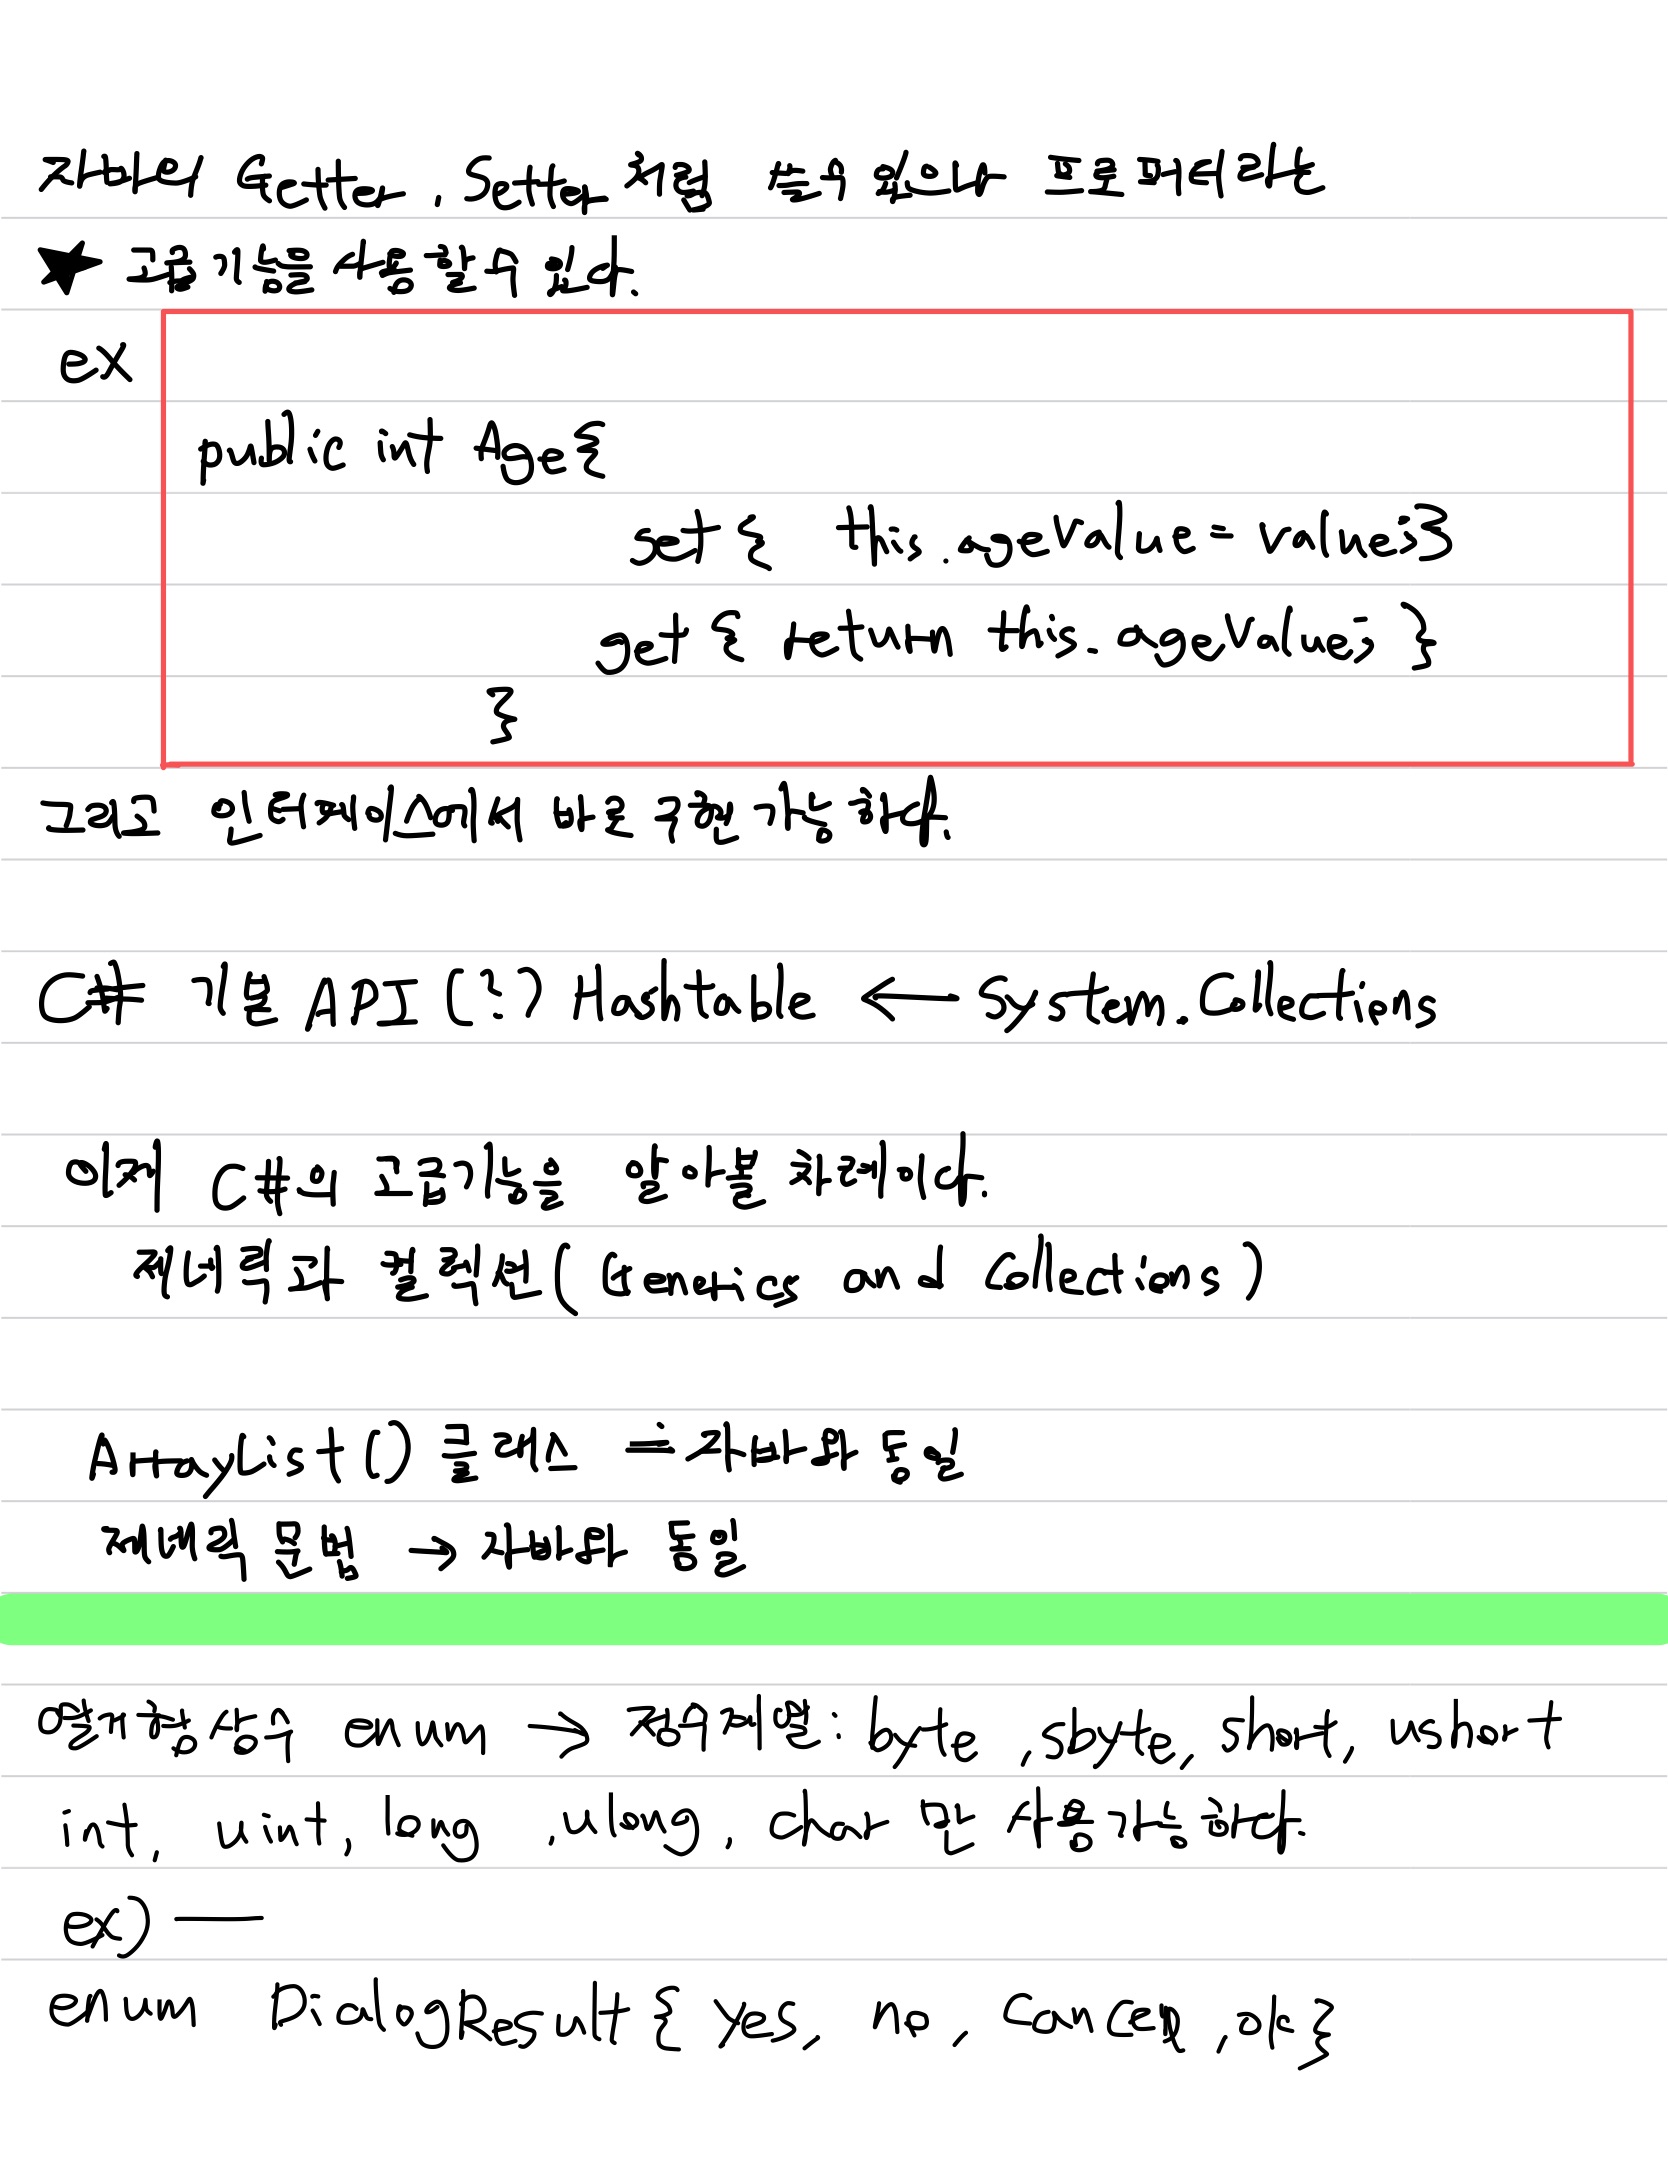 자바의 Getter, Setter 처럼 쓸수 있으나 프로퍼티라는
★ 고급기능을 사용할 수 있다.
ex
public int Age{
set { this.ageValue = value;}
get { return this.ageValue; }
}
그리고 인터페이스에서 바로 구현가능하다.
C# 기본 API (?) Hashtable ← System.Collections
이제 C#의 고급기능을 알아볼 차례이다.
제네릭과 컬렉션( Generics and Collections )
ArrayList() 클래스 ≐ 자바와 동일
제네릭 문법 → 자바와 동일
열거형상수 enum → 정수계열: byte, sbyte, short, ushort
int, uint, long, ulong, char 만 사용가능하다.
ex) —
enum DialogResult { yes, no, Cancel, ok }